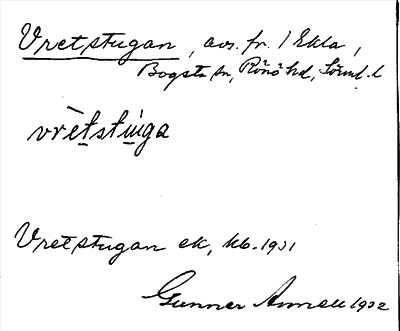 Vretstugan, avs. fr. 1 Ekla,
Bogsta sn, Rönö hd, Sörml. l
vrètstúga
Vretstugan ek, kb. 1931
Gunnar Annell 1932